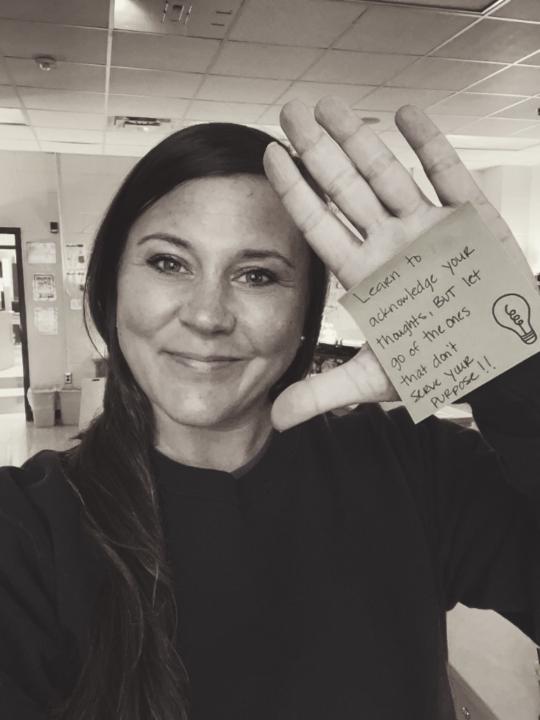 Learn to
acknowledge your
thoughts, BUT let
go of the ones
that don't
serve your
purpose!!